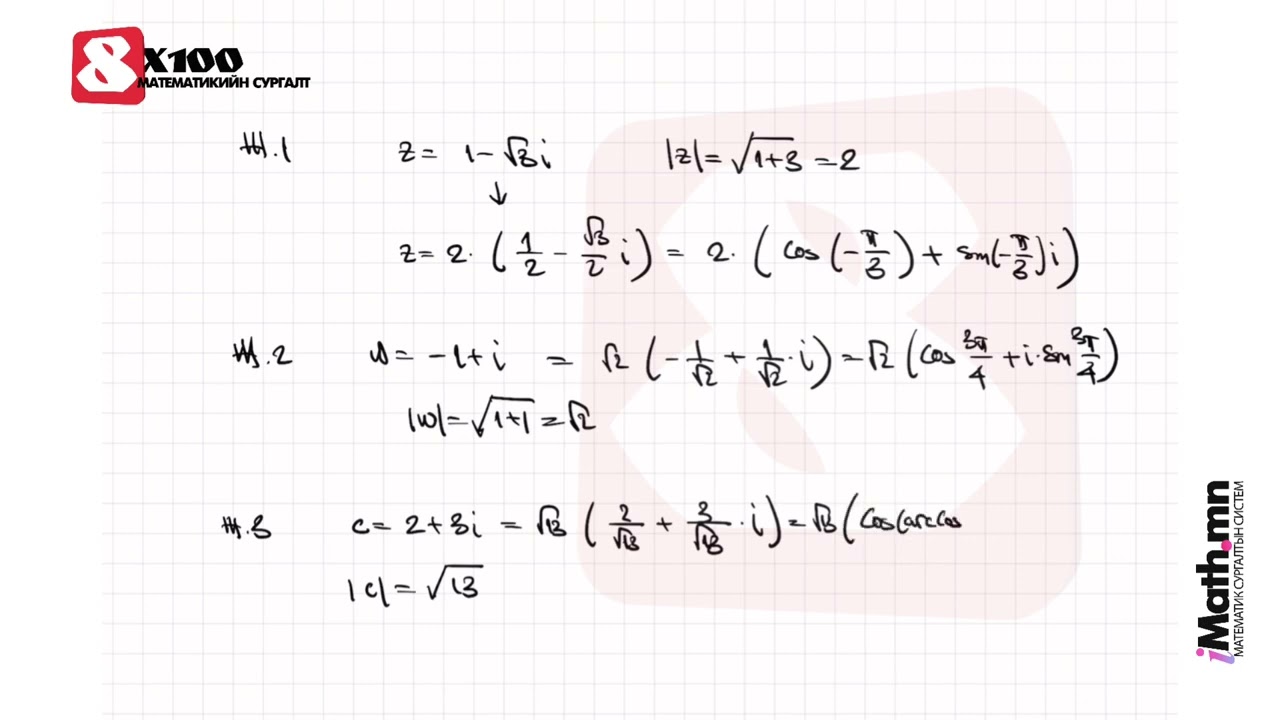 8x100
МАТЕМАТИКИЙН СУРГАЛТ
Ж.1 z = 1 - √3 i |z| = √(1+3) = 2
↓
z = 2 · (1/2 - √3/2 i) = 2 · (cos(-π/3) + sin(-π/3)i)
Ж.2 w = -1 + i = √2 (-1/√2 + 1/√2 · i) = √2 (cos 3π/4 + i · sin 3π/4)
|w| = √(1+1) = √2
Ж.3 c = 2 + 3i = √13 (2/√13 + 3/√13 · i) = √13 (cos(arccos
|c| = √13
iMath.mn
МАТЕМАТИК СУРГАЛТЫН СИСТЕМ